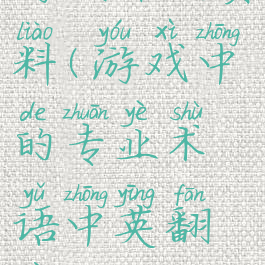 liào yóu xì zhōng
料(游戏中
de zhuān yè shù
的专业术
yǔ zhōng yīng fān
语中英翻